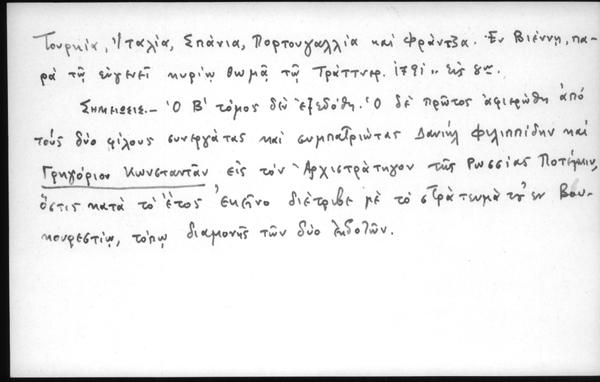 Τουρκία, Ἰταλία, Σπάνια, Πορτουγαλλία καὶ Φράντζα. Ἐν Βιέννῃ, πα-
ρὰ τῷ εὐγενεῖ κυρίῳ Θωμᾷ τῷ Τράττνερ. 1791,, εἰς 8ον.
Σημείωσις.- Ὁ Β' τόμος δὲν ἐξεδόθη. Ὁ δὲ πρῶτος ἀφιερώθη ἀπὸ
τοὺς δύο φίλους συνεργάτας καὶ συμπατριώτας Δανιὴλ Φιλιππίδην καὶ
Γρηγόριον Κωνσταντᾶν εἰς τὸν Ἀρχιστράτηγον τῆς Ρωσσίας Ποτέμκιν,
ὅστις κατὰ τὸ ἔτος ἐκεῖνο διέτριβε μὲ τὸ στράτευμά του ἐν Βου-
κουρεστίῳ, τόπῳ διαμονῆς τῶν δύο ἐκδοτῶν.